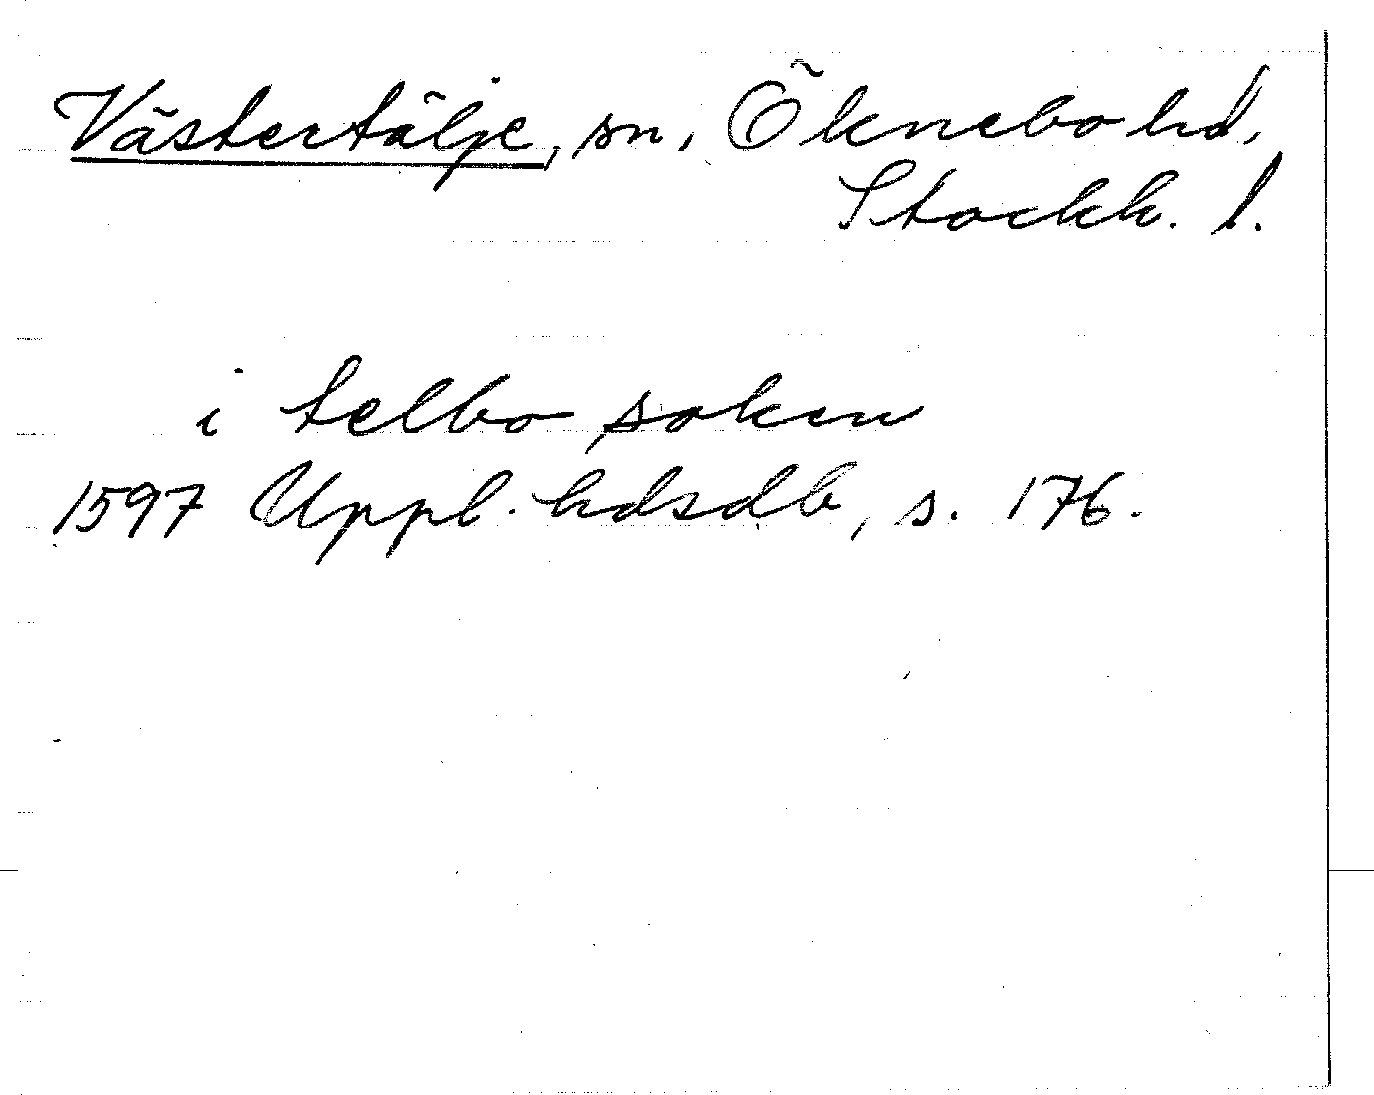 Västertälje, sn, Öknebo hd,
Stockh. l.
i telbo soken
1597 Uppl. hdsdb, s. 176.